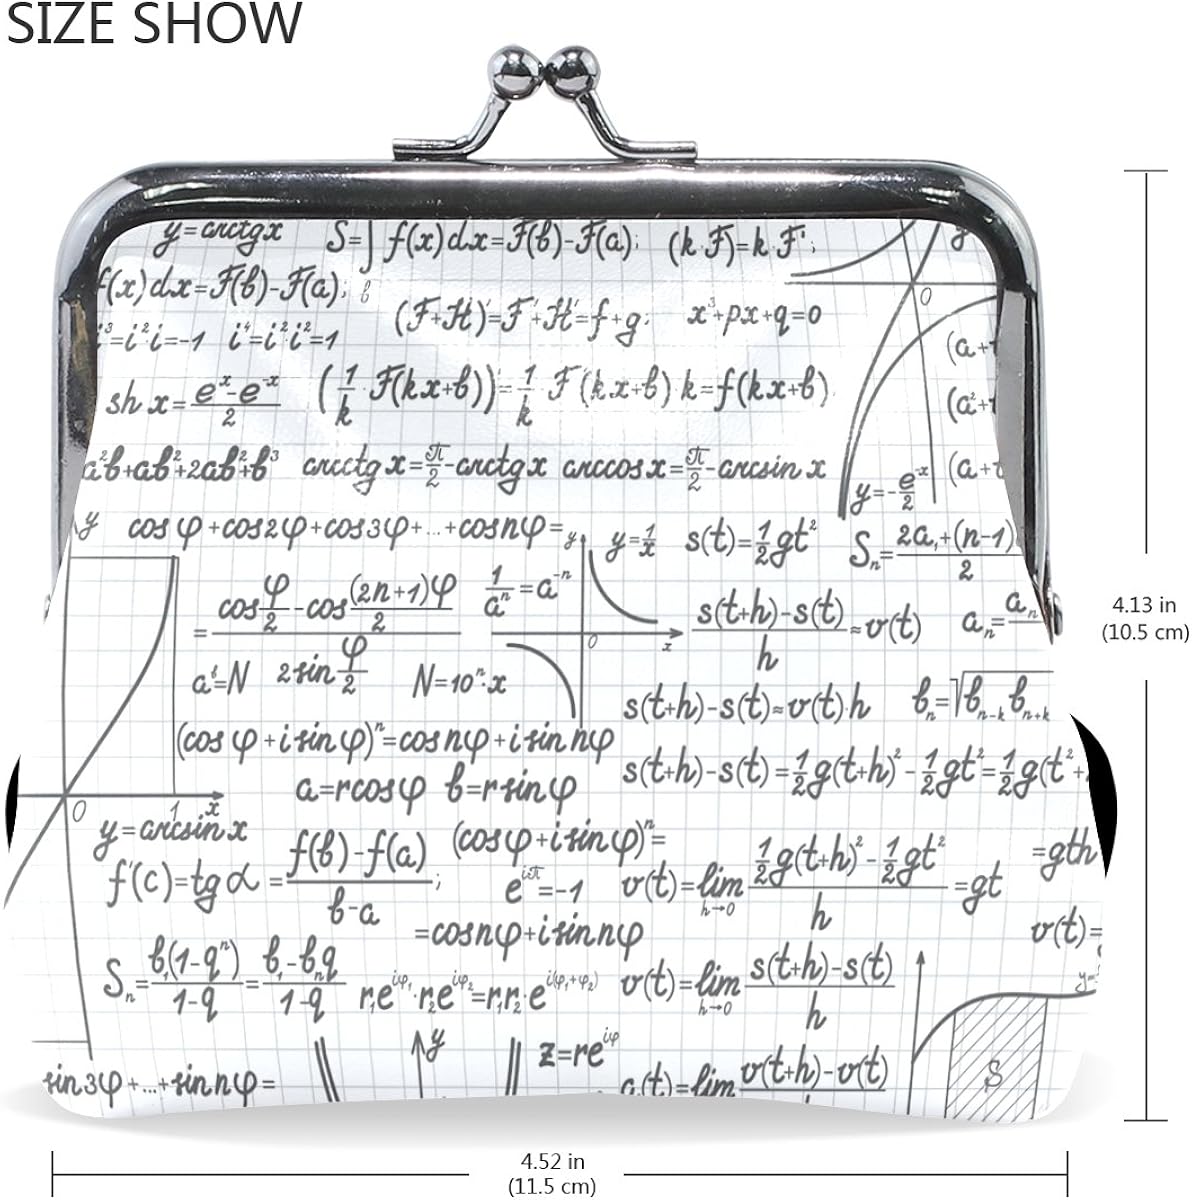 SIZE SHOW
y=arctgx S=∫f(x)dx=F(b)-F(a); (k·F)=k·F';
f(x)dx=F(b)-F(a);
(F+H)'=F'+H'=f+g; x³+px+q=0
i³=i²·i=-1 i⁴=i²·i²=1
(a+
sh x=(eˣ-e⁻ˣ)/2 (1/k·F(kx+b))'=1/k·F'(kx+b)·k=f(kx+b)
(a²+
a²b+ab²+2ab²+b³ arcctgx=π/2-arctgx arccosx=π/2-arcsinx
(a+
y=-e⁻ˣ/2
y cosφ+cos2φ+cos3φ+...+cosnφ= y y=1/x s(t)=1/2gt² Sₙ=(2a₁+(n-1)/2
=(cosφ/2-cos(2n+1)φ/2)/(2sinφ/2) 1/aⁿ=a⁻ⁿ
0 x (s(t+h)-s(t))/h≈v(t) aₙ=aₙ
aᵗ=N N=10ⁿ·x
s(t+h)-s(t)≈v(t)·h bₙ=√bₙ₋ₖbₙ₊ₖ
(cosφ+isinφ)ⁿ=cosnφ+isinnφ
s(t+h)-s(t)=1/2g(t+h)²-1/2gt²=1/2g(t²+
a=rcosφ b=rsinφ
0 1 x
y=arcsinx
(cosφ+isinφ)ⁿ=
f'(c)=tgα=(f(b)-f(a))/(b-a);
e^iπ=-1
v(t)=lim h→0 (1/2g(t+h)²-1/2gt²)/h=gt
=gth
=cosnφ+isinnφ
v(t)=
Sₙ=b₁(1-qⁿ)/(1-q)=(b₁-bₙq)/(1-q)
r₁e^iφ₁·r₂e^iφ₂=r₁r₂e^i(φ₁+φ₂)
v(t)=lim h→0 (s(t+h)-s(t))/h
y=
y
z=re^iφ
S
sin3φ+...+sinnφ=
a(t)=lim v(t+h)-v(t)
4.13 in
(10.5 cm)
4.52 in
(11.5 cm)